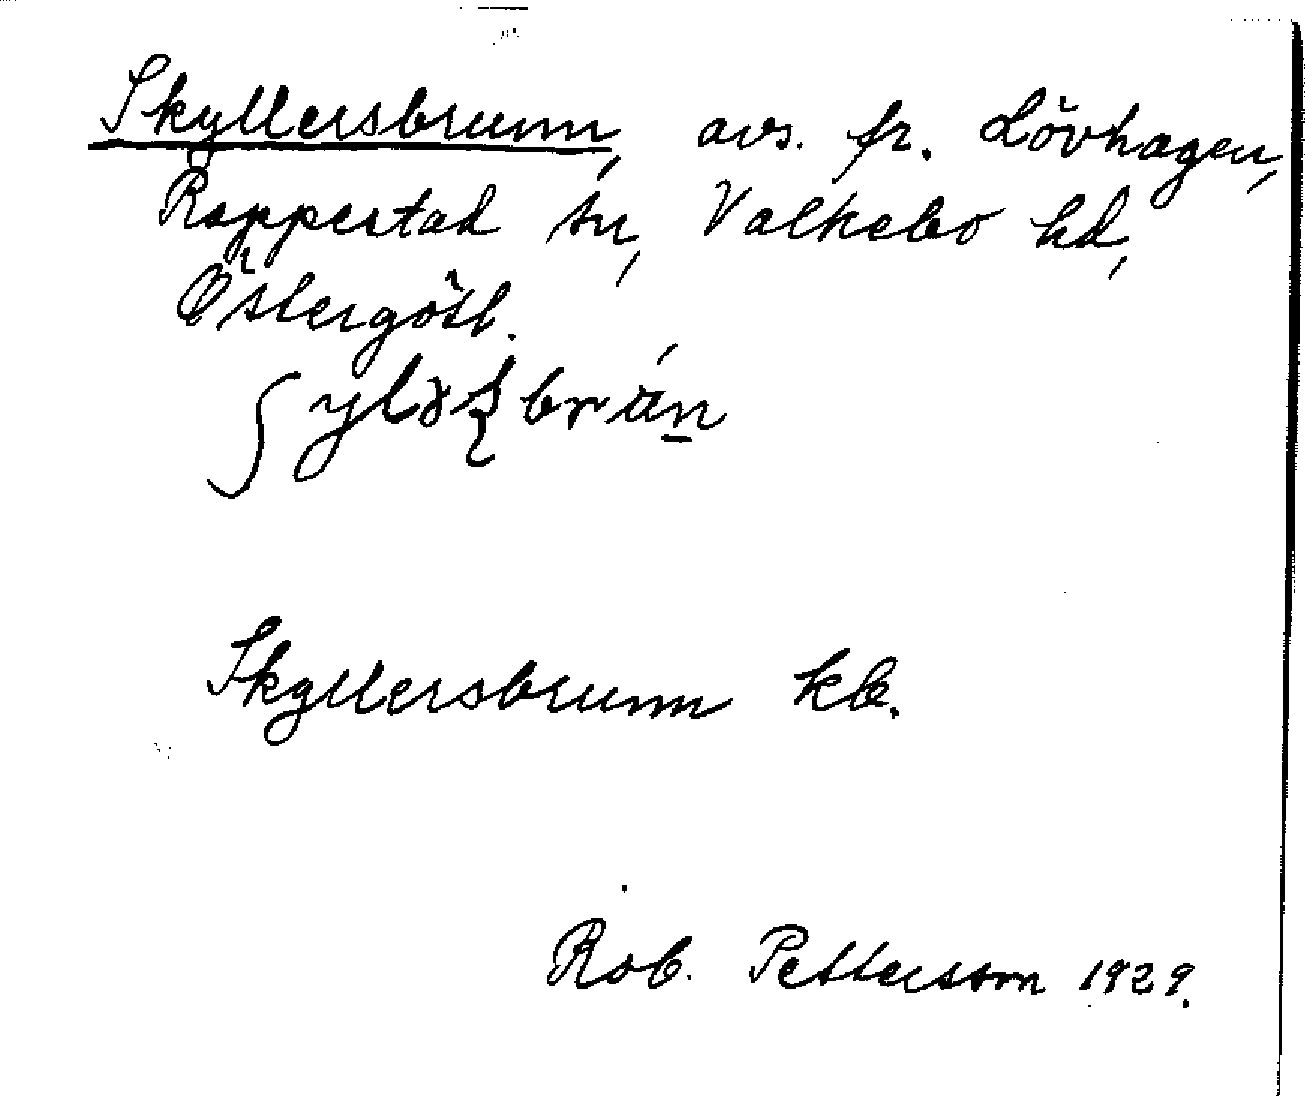 Skyllersbrunn, avs. fr. Lövhagen,
Rappestad sn, Valkebo hd,
Östergötl.
Skyllersbrunn kb.
Rob. Petterson 1929.